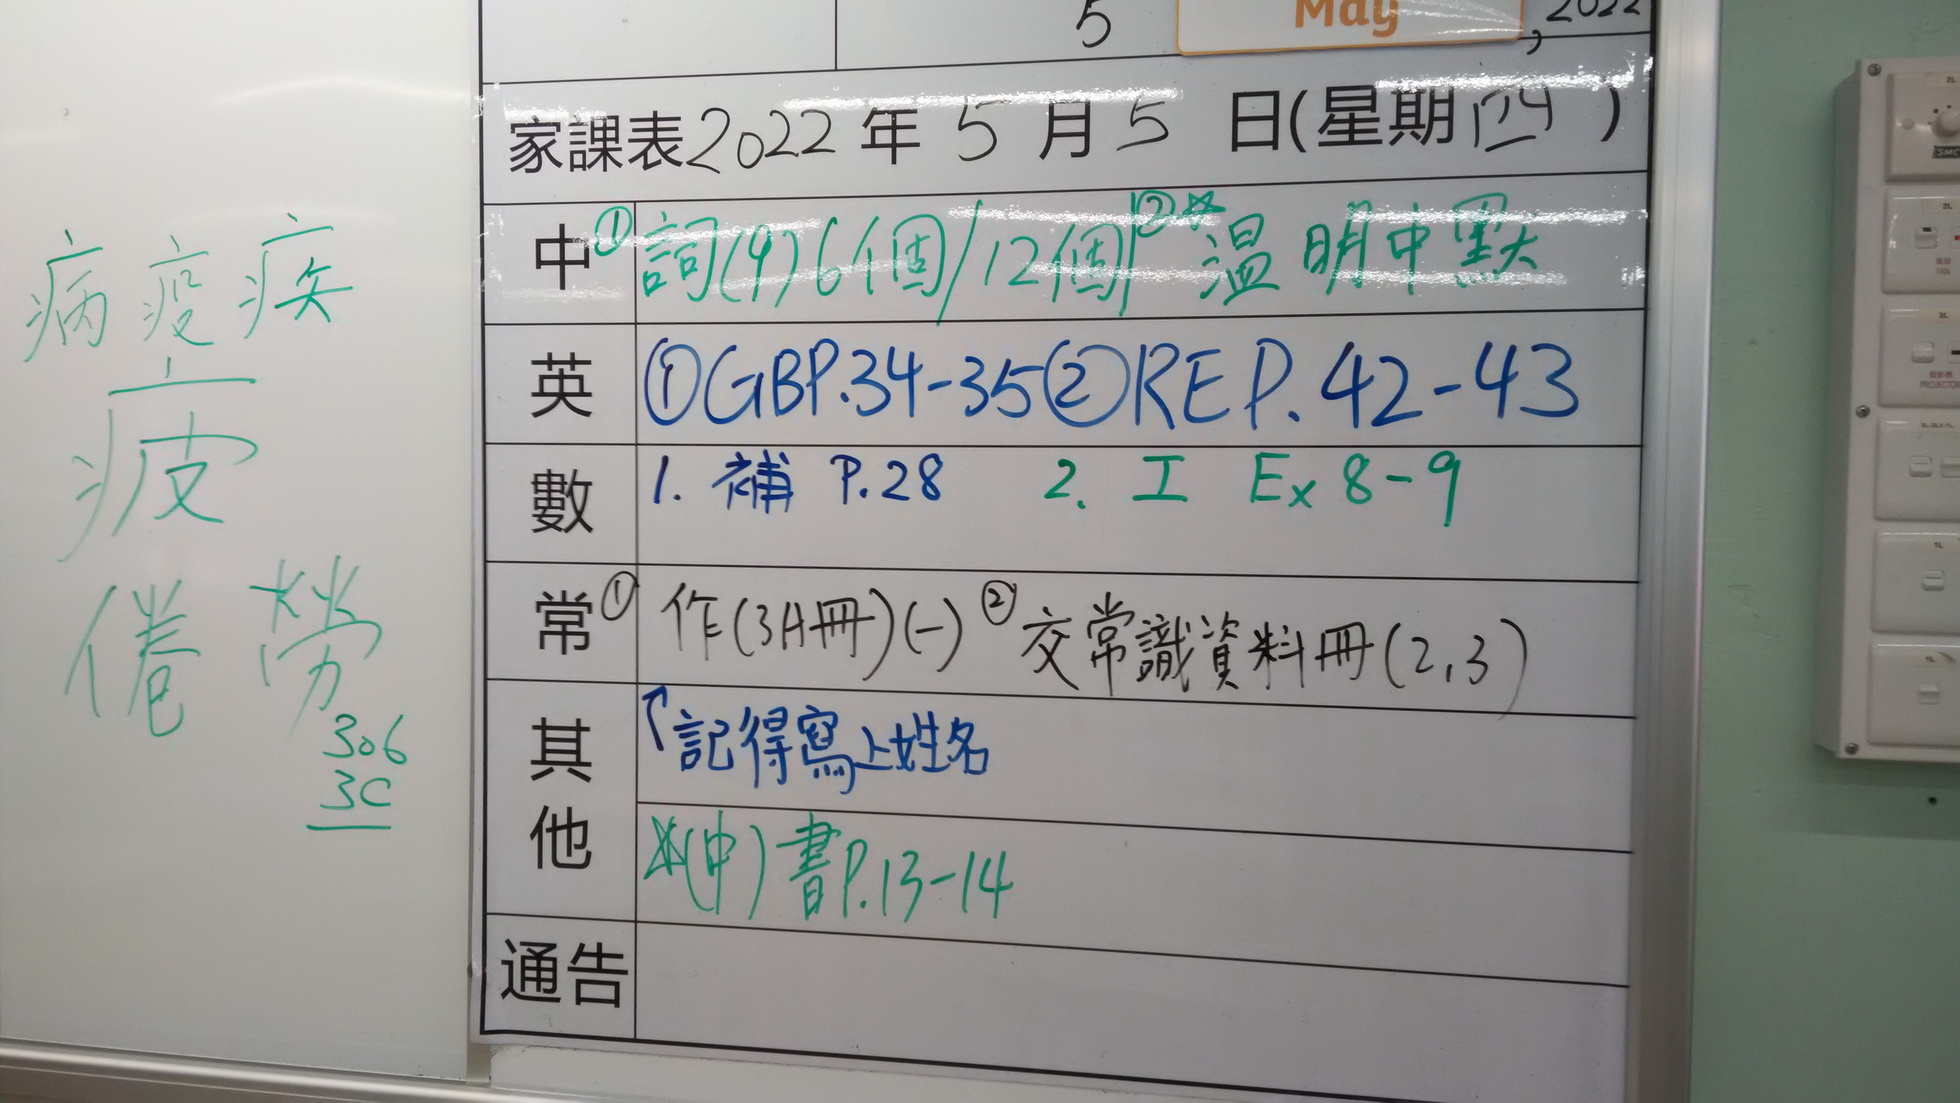 病疫疾
疲
倦勞
306
3C
5 May, 2022
家課表2022年5月5日(星期四)
中 ①詞(9)6個/12個 ②*溫明中默
英 ①GBP.34-35②REP.42-43
數 1. 補 P.28 2. 工 Ex 8-9
常 ①作(3A冊)(一) ②交常識資料冊(2,3)
其他 ↑記得寫上姓名
*(中)書P.13-14
通告